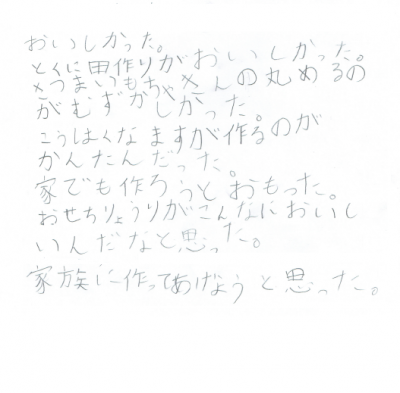 おいしかった。
とくに田作りがおいしかった。
さつまいもちゃきんの丸めるの
がむずかしかった。
こうはくなますが作るのが
かんたんだった。
家でも作ろうとおもった。
おせちりょうりがこんなにおいし
いんだなと思った。
家族に作ってあげようと思った。